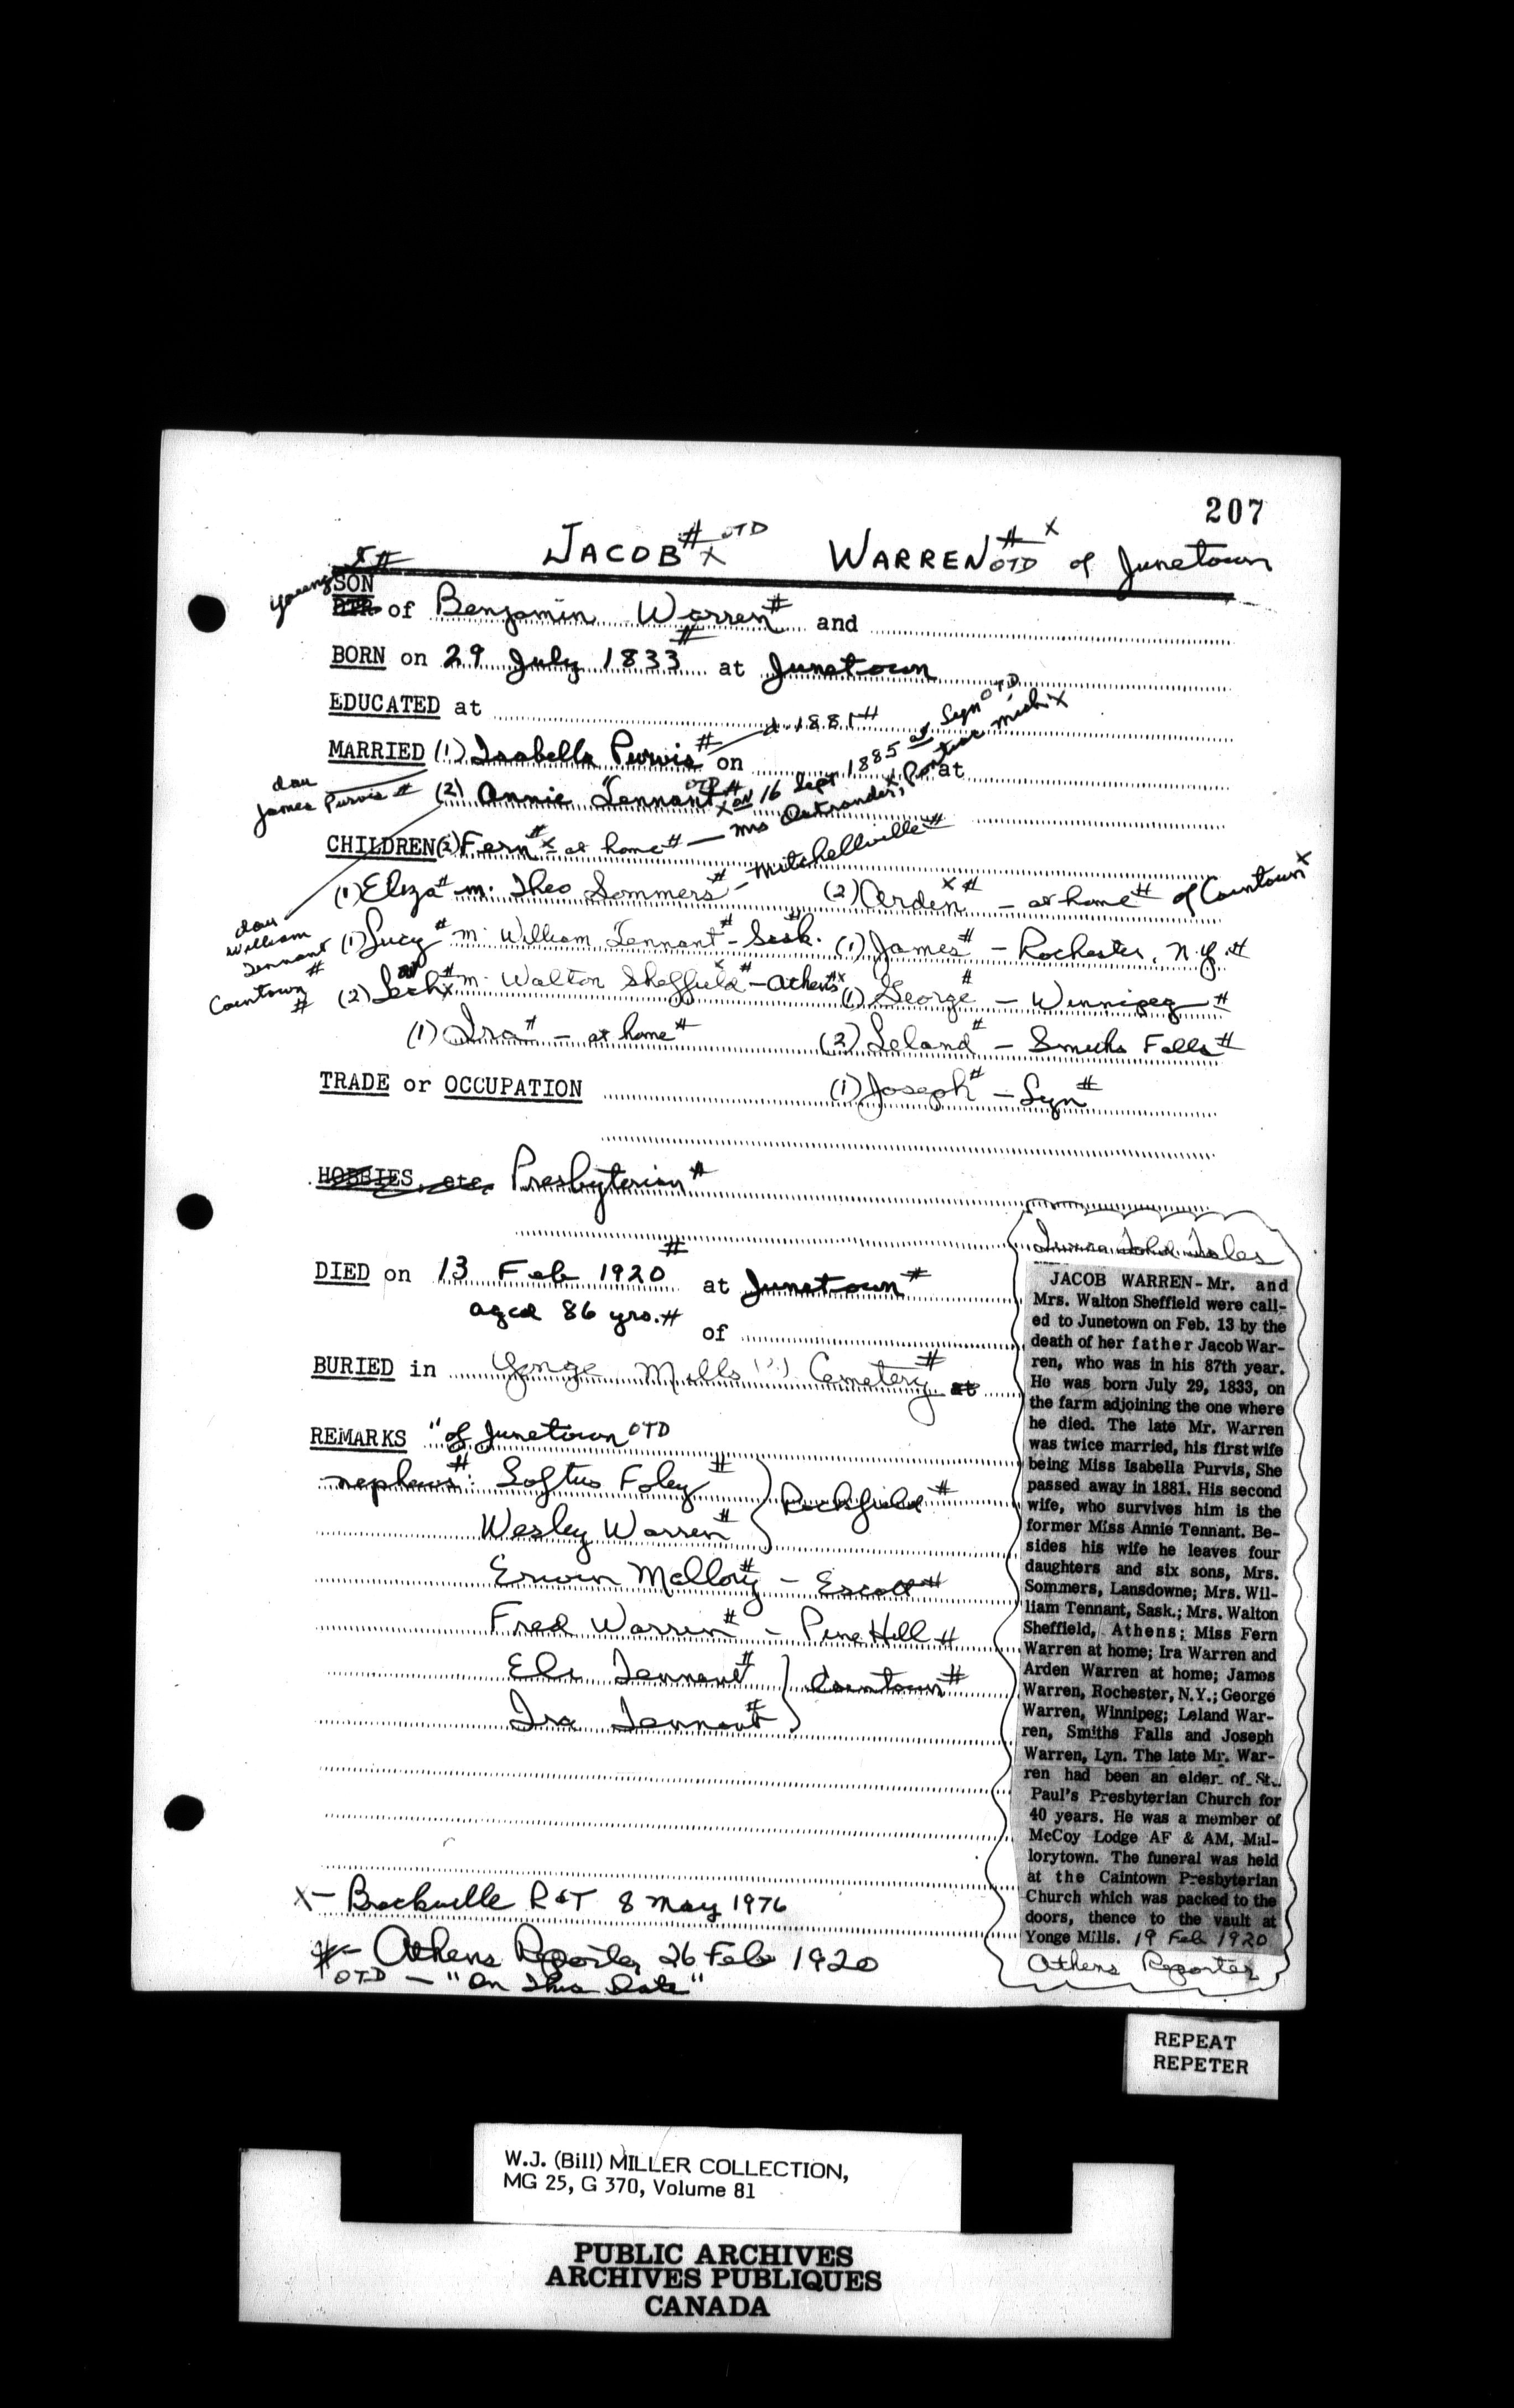 207
JACOB # x OTD WARREN # x OTD of Junetown
young x #
SON
DTR of Benjamin Warren # and
BORN on 29 July 1833 # at Junetown
EDUCATED at
MARRIED (1) Isabella Purvis # d. 1881 # on
dau James Purvis #
(2) Annie Tennant OTD # x on 16 Sept 1885 at Lyn OTD at
CHILDREN (2) Fern # x - at home # — Mrs Ostrander, x Pontiac Mich. x
(1) Eliza # m. Theo Sommers # - Mitchellville #
(2) Arden x # - at home # of Caintown x
dau William Tennant # Caintown #
(1) Lucy # m. William Tennant # - Sask. #
(1) James # - Rochester, N.Y. #
(2) Leah # x m. Walton Sheffield x # - Athens # x
(1) George # - Winnipeg #
(1) Ira # - at home #
(2) Leland # - Smiths Falls #
TRADE or OCCUPATION
(1) Joseph # - Lyn #
HOBBIES, etc. Presbyterian #
DIED on 13 Feb 1920 # at Junetown #
aged 86 yrs. #
of
BURIED in Yonge Mills (?) Cemetery # at
REMARKS "of Junetown OTD
nephews #: Loftus Foley # } Rockfield #
Wesley Warren #
Erwin Mallory # - Escott #
Fred Warren # - Pine Hill #
Eli Tennant # } Caintown #
Ira Tennant #
x - Brockville R & T 8 May 1976
# - Athens Reporter 26 Feb 1920
OTD - "On This Date"
Twice Told Tales
JACOB WARREN - Mr. and
Mrs. Walton Sheffield were call-
ed to Junetown on Feb. 13 by the
death of her father Jacob War-
ren, who was in his 87th year.
He was born July 29, 1833, on
the farm adjoining the one where
he died. The late Mr. Warren
was twice married, his first wife
being Miss Isabella Purvis, She
passed away in 1881. His second
wife, who survives him is the
former Miss Annie Tennant. Be-
sides his wife he leaves four
daughters and six sons, Mrs.
Sommers, Lansdowne; Mrs. Wil-
liam Tennant, Sask.; Mrs. Walton
Sheffield, Athens; Miss Fern
Warren at home; Ira Warren and
Arden Warren at home; James
Warren, Rochester, N.Y.; George
Warren, Winnipeg; Leland War-
ren, Smiths Falls and Joseph
Warren, Lyn. The late Mr. War-
ren had been an elder of St.
Paul's Presbyterian Church for
40 years. He was a member of
McCoy Lodge AF & AM, Mal-
lorytown. The funeral was held
at the Caintown Presbyterian
Church which was packed to the
doors, thence to the vault at
Yonge Mills. 19 Feb 1920
Athens Reporter
REPEAT
REPETER
W.J. (Bill) MILLER COLLECTION,
MG 25, G 370, Volume 81
PUBLIC ARCHIVES
ARCHIVES PUBLIQUES
CANADA